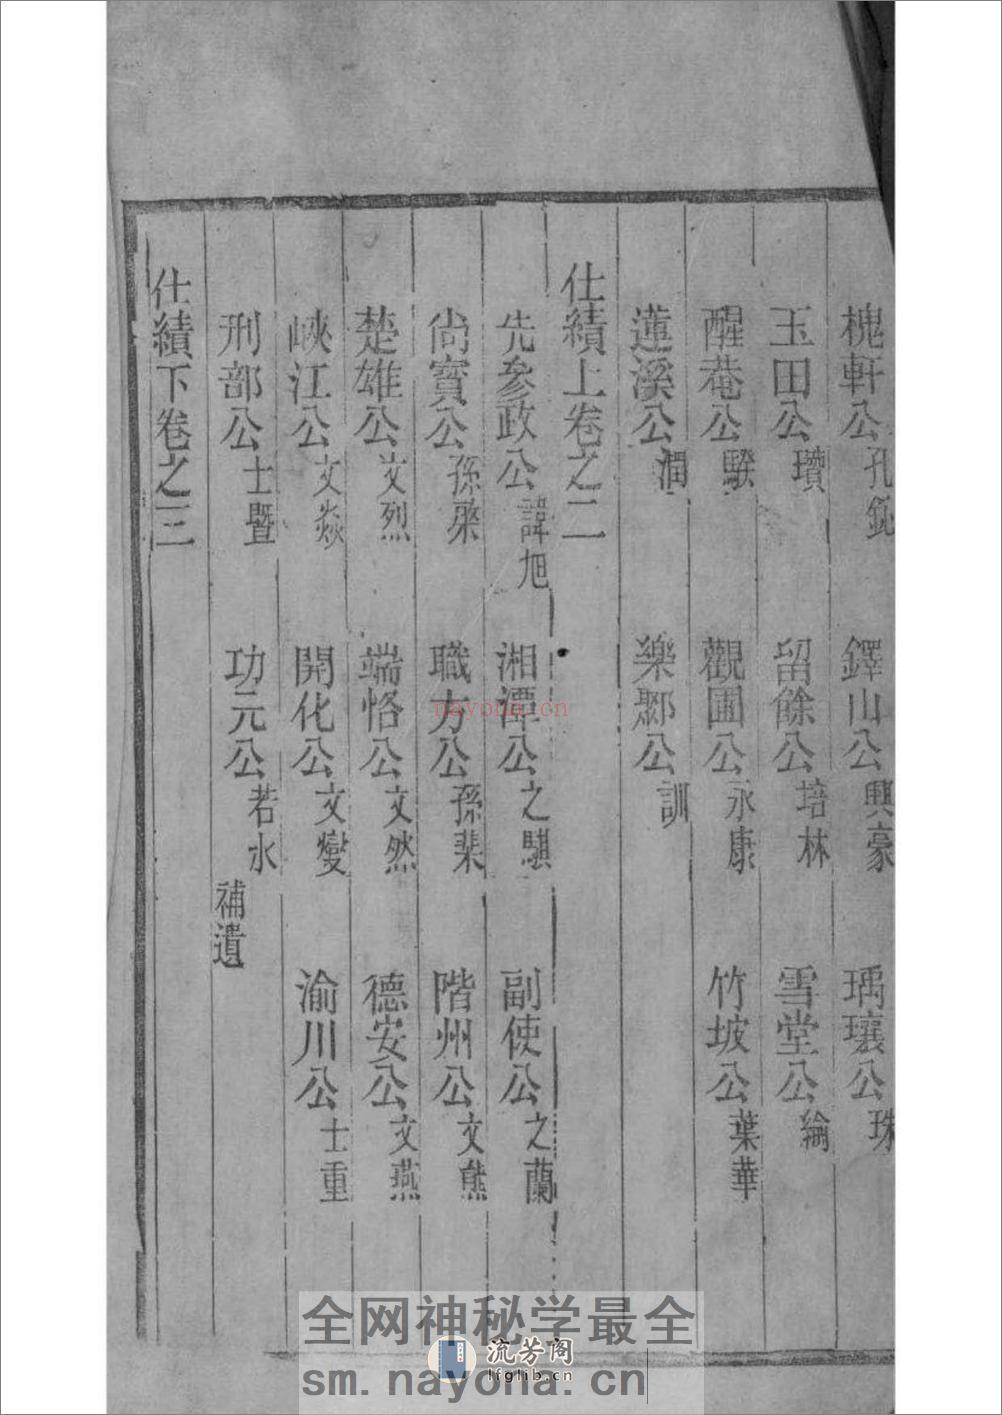 槐軒公孔 鐸山公興豪 瑀瓖公珠
玉田公瓚 留餘公培林 雪堂公綸
醒菴公騤 觀圃公永康 竹坡公葉華
蓮溪公潤 樂鄹公訓
仕績上卷之二
先參政公諱旭 湘潭公之騏 副使公之蘭
尚寶公孫榮 職方公孫棐 階州公文熊
楚雄公文烈 端恪公文然 德安公文燕
峽江公文焱 開化公文燮 渝川公士重
刑部公士暨 功元公若水 補遺
仕績下卷之三
nayona.cn
全网神秘学最全
流芳阁
lfglib.cn
sm.nayona.cn